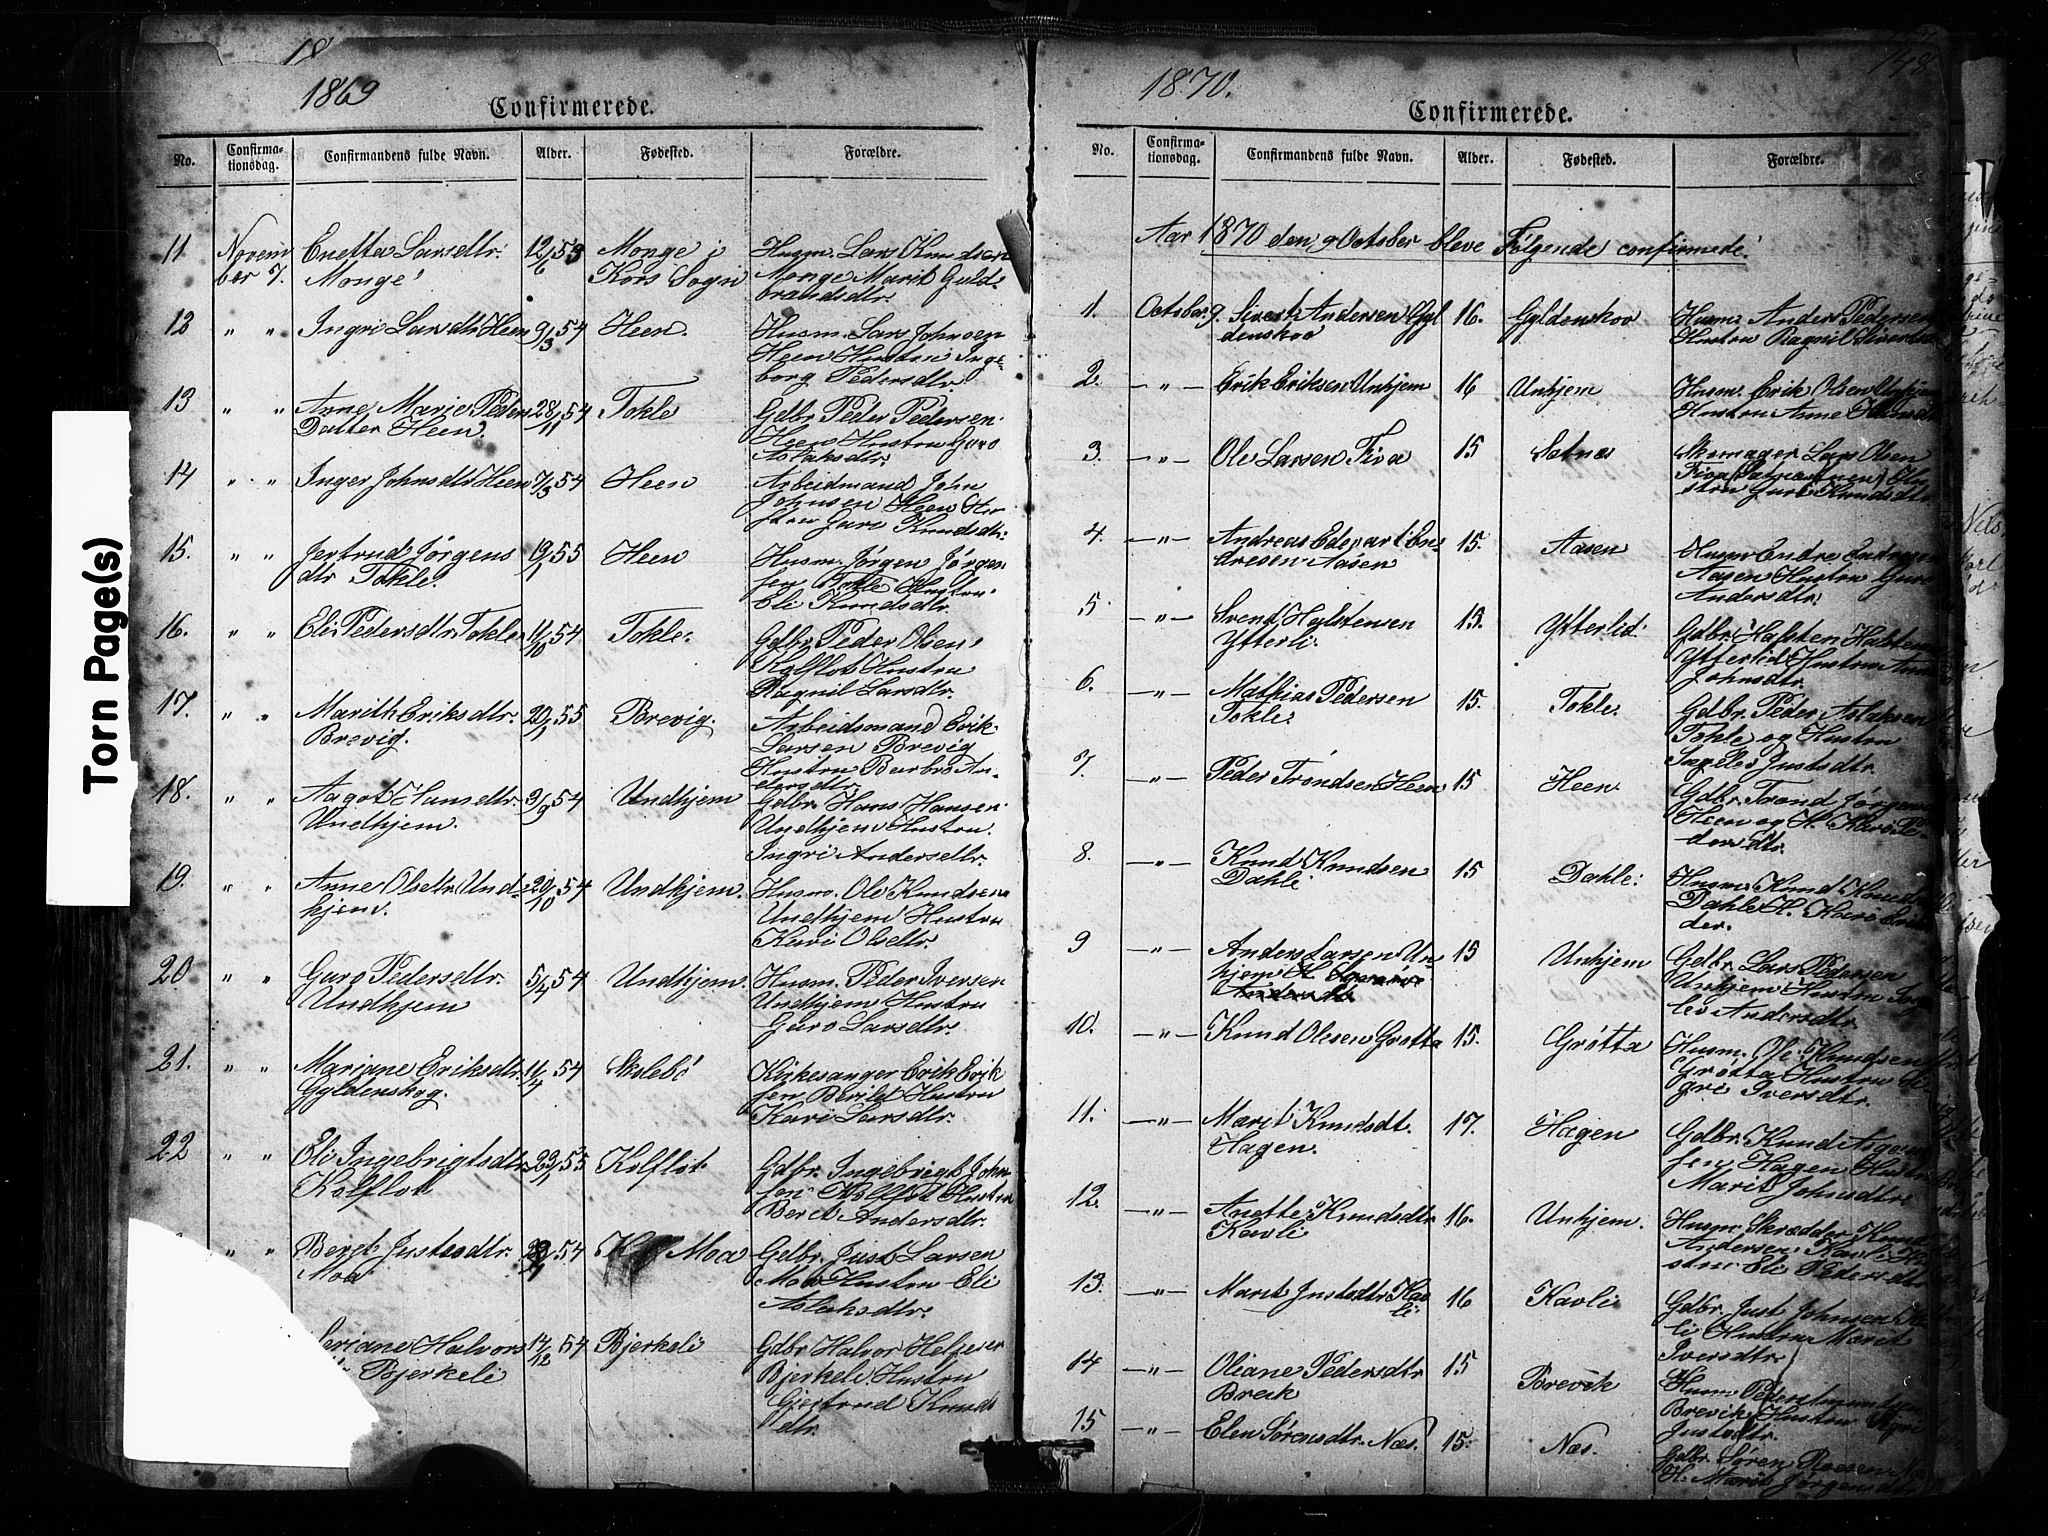 Torn Page(s)
18
1869
Confirmerede.
No.
Confirma-
tionsdag.
Confirmandens fulde Navn.
Alder.
Fødested.
Forældre.
11 Novem Enetta Larsdtr. 12/6 53 Monge i Husm. Lars Knudsen
ber 7. Monge Kors Sogn Monge Marit Guld
brandsdtr.
12 " " Ingri Larsdtr Heen 9/3 54 Heen. Husm. Lars Johnsen
Heen Hustru Inge-
borg Pedersdtr.
13 " " Anne Marie Peders 28/11 54 Tokle Gdbr. Peder Pedersen
Datter Heen. Heen Hustru Guro
Aslaksdtr.
14 " " Inger Johnsdtr Heen 7/3 54 Heen Arbeidmand John
Johnsen Heen Hu-
stru Guri Knudsdtr.
15. " " Jertrud Jørgens 19/1 55 Heen Husm. Jørgen Jørgen
dtr Tokle. sen Tokle Hustru
Eli Knudsdtr.
16. " " Eli Pedersdtr Tokle 11/10 54 Tokle. Gdbr. Peder Olsen
Kolflot Hustru
Ragnil Larsdtr.
17. " " Marith Eriksdtr. 20/1 55 Brevig. Arbeidsmand Erik
Brevig. Larsen Brevig
Hustru Barbro An-
dersdtr.
18. " " Aagot Hansdtr. 3/9 54 Undhjem Gdbr. Hans Hansen
Undhjem. Undhjem Hustru
Ingri Andersdtr.
19. " " Anne Olsdtr. Und- 20/10 54 Undhjem. Husm. Ole Knudsen
hjem. Undhjem Hustru
Kari Olsdtr.
20 " " Guro Pedersdtr. 5/4 54 Undhjem. Husm. Peder Iversen
Undhjem Undhjem Hustru
Guro Larsdtr.
21. " " Marjane Eriksdtr. 11/4 54 Skolebø Kirkesanger Erik Erik
Gyldenskog. sen Hustru
Kari Larsdtr.
22 " " Eli Ingebrigtsdtr. 23/1 55 Kolflot Gdbr. Ingebrigt John
Kolflot sen Kolflot Hustru
Beret Andersdtr.
" " Bergt. Justsdtr. 54 Moa Gdbr. Just Larsen
Moa Moa Hustru Eli
Aslaksdtr.
Halvors 14/12 54 Bjerkeli Gdbr Halvor Helgesen
Bjerkeli Bjerkeli Hustru
Gjertrud Knuds
dtr.
148
1870.
Confirmerede.
No.
Confirma-
tionsdag.
Confirmandens fulde Navn.
Alder.
Fødested.
Forældre.
Aar 1870 den 9 October bleve Følgende confirmede.
1. October 9. Sivert Andersen Gyl 16. Gyldenskov Husm. Anders Pedersen
denskov Hustru Ragnil Sivertsdtr
2. — " — Erik Eriksen Unhjem 16 Unhjem Husm. Erik Olsen Unhjem
Hustru Anne Hansdtr
3. — " — Ole Larsen Fiva 15 Sætnes Skomager Lars Olsen
Fiva Hu
stru Guri Knudsdtr.
4. — " — Andreas Edevart En- 15. Aasen Husm Endre Endresen
dresen Aasen Aasen Hustru Guro
Andersdtr.
5 — " — Svend Halstensen 15. Ytterlid. Gdbr. Halsten Halstens
Ytterli. Ytterlid Hustru
Johnsdtr.
6. — " — Mathias Pedersen 15. Tokle. Gdbr. Peder Aslaksen
Tokle Tokle og Hustru
Ingelev Justsdtr.
7. — " — Peder Trondsen Heen 15 Heen Gdbr. Trond Jørgens
Heen og H. Kari Pe-
dersdtr.
8. — " — Knud Knudsen 15 Dahle. Husm. Knud Knudsen
Dahle Dahle H. Kari
9 — " — Anders Larsen Un- 15 Unhjem Gdbr. Lars Pedersen
hjem Unhjem Hustru Inge
lev Andersdtr.
10. — " — Knud Olesen Grøtta 15. Grøtta Husm. Ole Knudsen
Grøtta Hustru Si
gri Iversdtr.
11. — " — Marit Knudsdt. 17. Hagen Gdbr. Knud
Hagen. sen Hagen Hustru
Marit Johnsdtr.
12. — " — Anette Knudsdtr 16. Unhjem. Husm. Skrædder Knud
Kavli Andersen Kavli Hu
stru Eli Pedersdtr
13. — " — Marit Justsdtr. Kav 16 Kavli Gdbr. Just Johnsen Kav
li li Hustru Marit
Iversdtr.
14 — " — Oliane Pedersdtr 15 Brevik Husm Peder
Brevik Brevik Hustru
Justsdtr.
15 — " — Elen Sørensdtr. Næs. 15. Næs. Gdbr. Søren
H. Marit Jørgensdtr